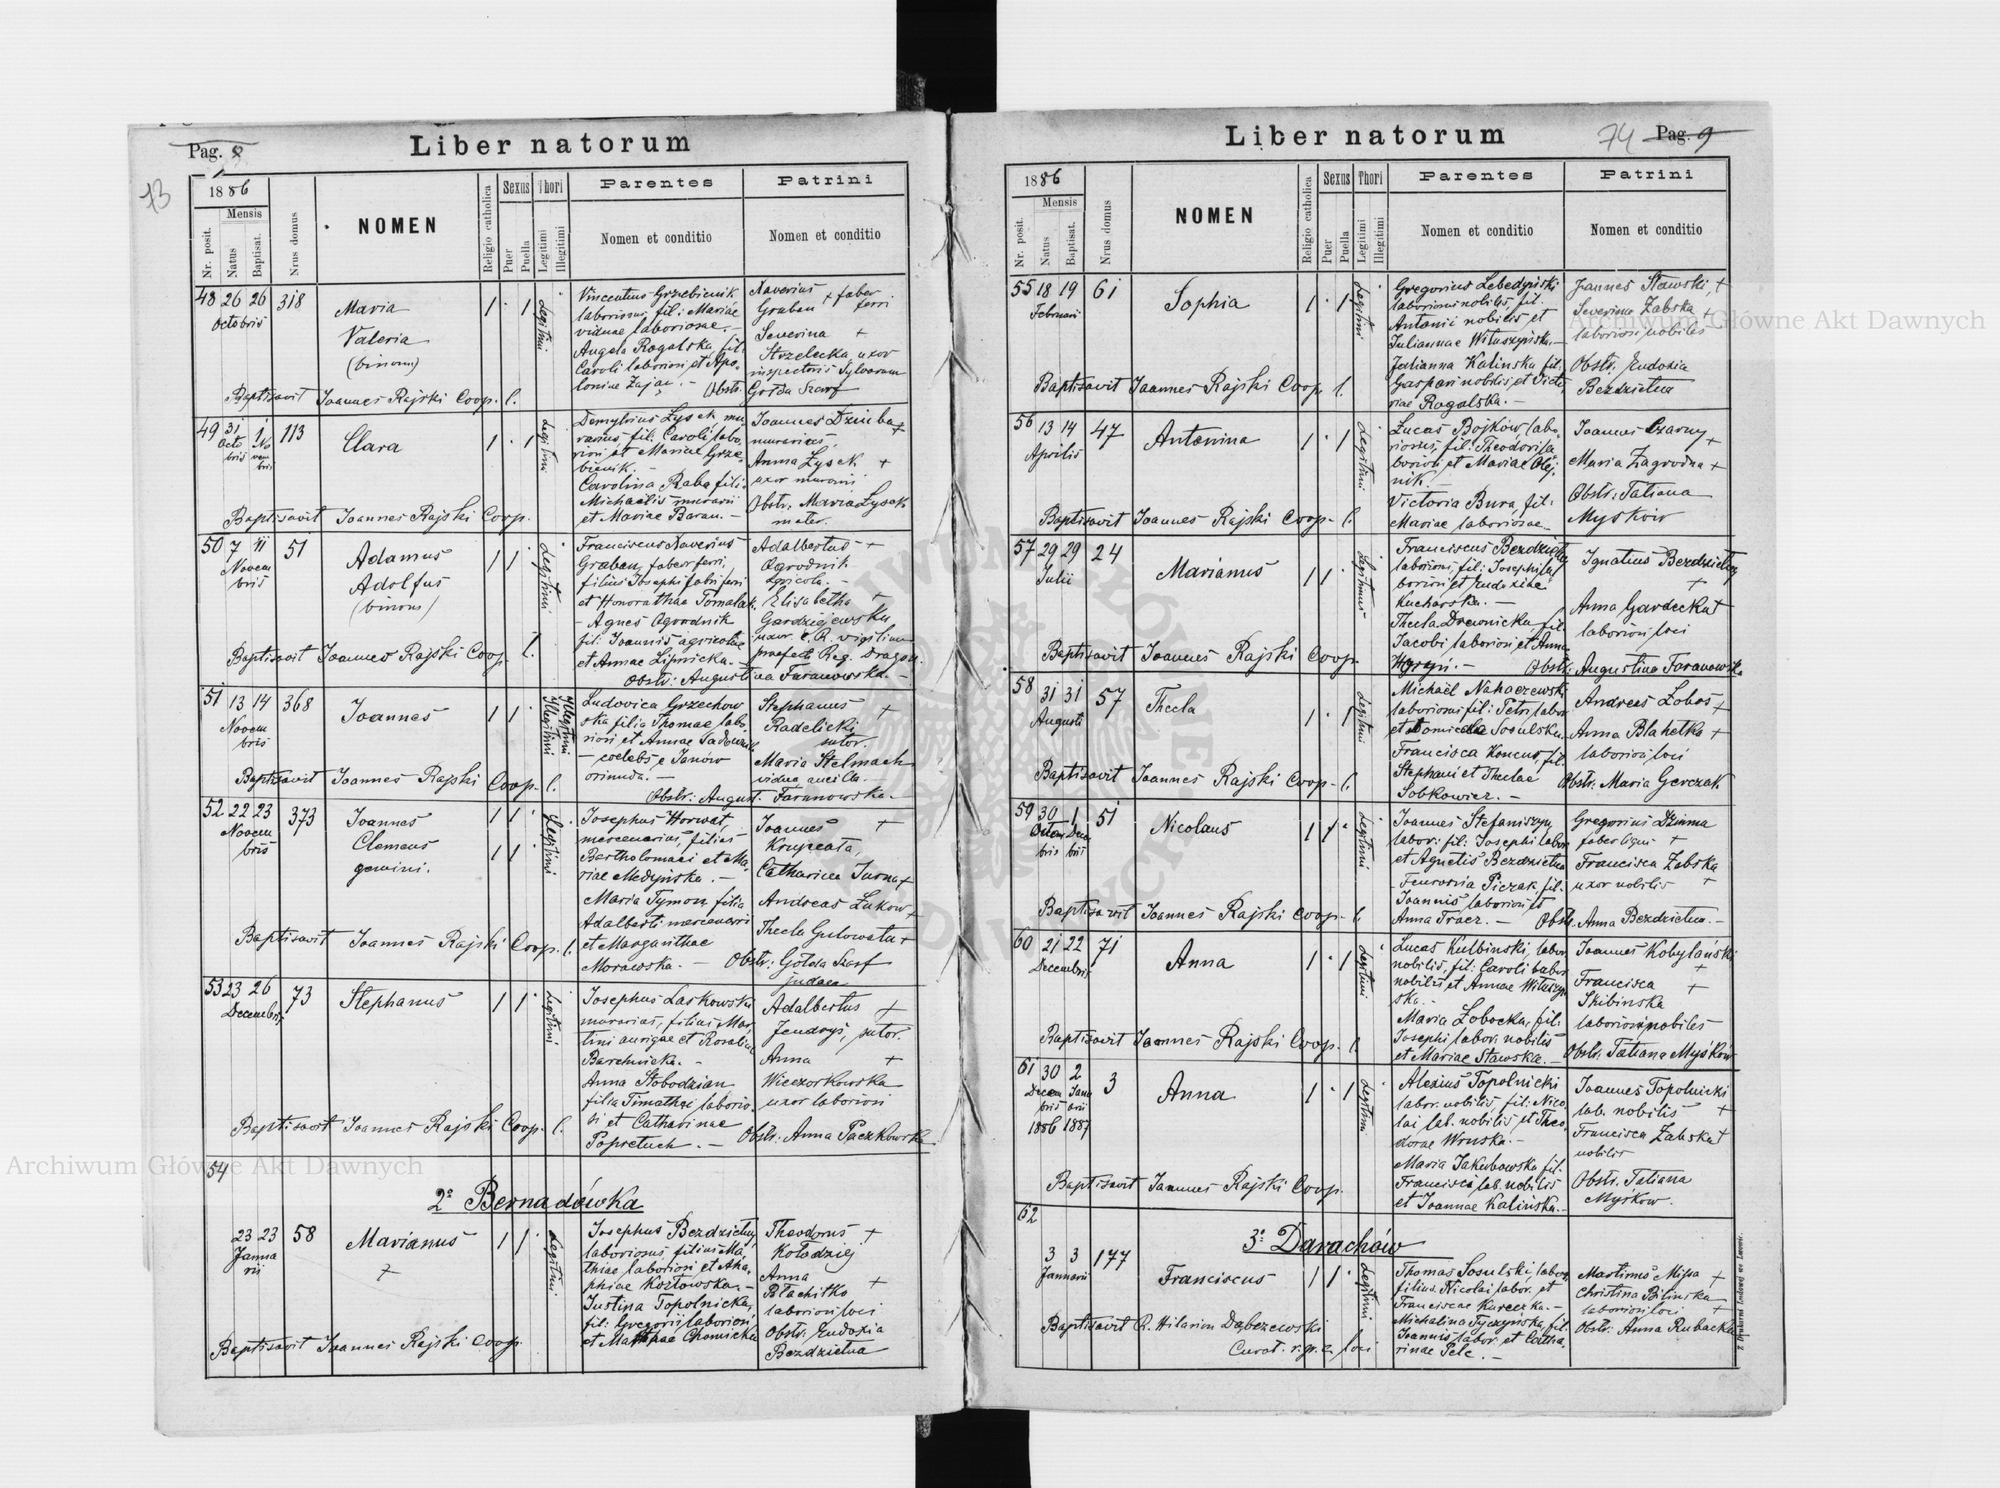 Pag. 8
Liber natorum
73
1886
Mensis
Nr. posit.
Natus
Baptisat.
Nrus domus
NOMEN
Religio catholica
Sexus
Puer
Puella
Thori
Legitimi
Illegitimi
Parentes
Nomen et conditio
Patrini
Nomen et conditio
48 26 26 318
Octobris
Maria
Valeria
(binom)
1 1
Legitimi
Vincentius Grzebienik
laboriosus, fil: Mariae
viduae laboriosae. –
Angela Rogalska fil.
Caroli laboriosi et Apo-
loniae Zając. –
Xaverius
Graban + faber
ferri
Severina +
Strzelecka, uxor
inspectoris sylvarum
Obstr. Golda Szarf
Baptisavit Joannes Rajski Coop. l.
49 31 1 113
Octobris Novembris
Clara
1 1
Legitimi
Demytrius Łysek mu-
rarius, fil: Caroli labo-
riosi et Mariae Grze-
bienik. –
Carolina Raba filia
Michaëlis murarii
et Mariae Baran. –
Joannes Dziuba +
murarius,
Anna Łysek +
uxor murarii
Obstr: Maria Łysek
mater.
Baptisavit Joannes Rajski Coop.
50 7 11 51
Novembris
Adamus
Adolfus
(binom)
1 1
Legitimi
Franciscus Xaverius
Graban, faber ferri,
filius Josephi fabri ferri
et Honorathae Tomalak.
– Agnes Ogrodnik
fil: Joannis agricolae
et Annae Lipnicka. –
Adalbertus +
Ogrodnik
agricola. –
Elisabetha +
Gardziejewska
uxor c. R. vigilium
praefecti Reg. Dragon.
Obstr: Augustina Taranowska. –
Baptisavit Joannes Rajski Coop. l.
51 13 14 368
Novembris
Joannes
1 1
Illegitimi
Illegitimi
Ludovica Grzechow-
ska filia Thomae labo-
riosi et Annae Sadowska
– coelebs e Janów
oriunda. –
Stephanus +
Radelicki
sutor.
Maria Stelmach
vidua ancilla. –
Obstr: August. Taranowska. –
Baptisavit Joannes Rajski Coop. l.
52 22 23 373
Novembris
Joannes
Clemens
gemini.
1 1
1 1
Legitimi
Josephus Horwat,
mercenarius, filius
Bartholomaei et Ma-
riae Medyńska. –
Maria Tymon, filia
Adalberti mercenarii
et Margarithae
Morawska. –
Joannes +
Krupeata,
Catharina Surna +
Andreas Łukow +
Thecla Gulowata +
Obstr: Golda Szarf
judaea
Baptisavit Joannes Rajski Coop. l.
53 23 26 73
Decembris
Stephanus
1 1
Legitimi
Josephus Laskowski
murarius, filius Mar-
tini aurigae et Rosaliae
Barchnicka. –
Anna Słobodzian
filia Timathei laborio-
si et Catharinae
Popretuch. –
Adalbertus +
Jendrys, sutor.
Anna +
Wieczorkowska
uxor laboriosi
Obstr. Anna Paczkowska
Baptisavit Joannes Rajski Coop. l.
54
2° Bernadówka
23 23 58
Januarii
Marianus
+
1 1
Legitimi
Josephus Bezdzietny,
laboriosus, filius Ma-
thiae laboriosi et Aha-
phiae Kozłowska. –
Justina Topolnicka,
fil: Gregorii laboriosi
et Marthae Chomicka
Theodorus +
Kołodziej
Anna +
Błachitko
laboriosi loci
Obstr. Eudoxia
Bezdzietna
Baptisavit Joannes Rajski Coop.
Liber natorum
74 Pag. 9
1886
Mensis
Nr. posit.
Natus
Baptisat.
Nrus domus
NOMEN
Religio catholica
Sexus
Puer
Puella
Thori
Legitimi
Illegitimi
Parentes
Nomen et conditio
Patrini
Nomen et conditio
55 18 19 61
Februarii
Sophia
1 1
Legitimi
Gregorius Lebedyński
laboriosus nobilis, fil.
Antonii nobilis et
Juliannae Wituszyńska. –
Julianna Kalinska fil.
Gaspari nobilis, et Victo-
riae Rogalska. –
Joannes Stawski, +
Severina Zabska +
laboriosi nobiles
Obstr. Eudoxia
Bezdzietna
Baptisavit Joannes Rajski Coop. l.
56 13 14 47
Aprilis
Antonina
1 1
Legitimi
Lucas Bojków, labo-
riosus, fil: Theodori la-
boriosi et Mariae Olej-
nik. –
Victoria Bura, fil.
Mariae laboriosae. –
Joannes Czarny +
Maria Zagrodna +
Obstr: Tatiana
Myśków
Baptisavit Joannes Rajski Coop. l.
57 29 29 24
Julii
Marianus
1 1
Legitimus
Franciscus Bezdzietny
laboriosi, fil: Josephi la-
boriosi et Eudoxiae
Kucharska. –
Thecla Drewnicka, fil.
Jacobi laboriosi et Annae
Ignatius Bezdzietny
+
Anna Gardecka +
laboriosi loci
Obstr: Augustina Taranowska
Baptisavit Joannes Rajski Coop.
58 31 31 57
Augusti
Thecla
1 1
Legitimi
Michaël Nahaczewski
laboriosus fil: Petri labor.
et Domicela Sosulska. –
Francisca Koncur, fil.
Stephani et Theclae
Sobkowicz. –
Andreas Łobos +
Anna Blahetka +
laboriosi loci
Obstr: Maria Gerczak
Baptisavit Joannes Rajski Coop. l.
59 30 1 51
Octobris Decembris
Nicolaus
1 1
Legitimi
Joannes Stefaniszyn,
labor: fil: Josephi labor.
et Agnetis Bezdzietna
– Feurosia Piczak, fil.
Joannis laboriosi et
Anna Tracz. –
Gregorius Dziuma
faber ligni +
Francisca Zabska
uxor nobilis +
Obstr. Anna Bezdzietna. –
Baptisavit Joannes Rajski Coop. l.
60 21 22 71
Decembris
Anna
1 1
Legitimi
Lucas Kulbinski, labor.
nobilis, fil: Caroli labor.
nobilis et Annae Wituszyń-
ska. –
Maria Łobocka, fil.
Josephi labor. nobilis
et Mariae Stawska. –
Joannes Kobylański
+
Francisca +
Skibinska
laboriosi nobiles
Obstr: Tatiana Myśkow
Baptisavit Joannes Rajski Coop. l.
61 30 2 3
Decembris Januarii
1886 1887
Anna
1 1
Legitimi
Alexius Topolnicki
labor. nobilis, fil: Nico-
lai lab. nobilis et Theo-
dorae Wruska. –
Maria Jakubowska fil.
Francisci lab. nobilis
et Joannae Kalińska. –
Joannes Topolnicki
lab. nobilis +
Francisca Zabska +
nobilis
Obstr. Tatiana
Myśkow.
Baptisavit Joannes Rajski Coop.
62
3° Darachów
3 3 177
Januarii
Franciscus
1 1
Legitimi
Thomas Sosulski, labor,
filius Nicolai labor. et
Franciscae Kureczka. –
Michalina Tyczyńska, fil.
Joannis labor. et Catha-
rinae Pelc. –
Martinus Misa +
Christina Bilinska
laboriosi loci +
Obstr: Anna Rubacka
Baptisavit R. Hilarion Dąbczewski
Curat. r. gr. c. loci
Z Drukarni Ludowej we Lwowie.
Archiwum Główne Akt Dawnych
Archiwum Główne Akt Dawnych
ARCHIWUM GŁÓWNE AKT DAWNYCH